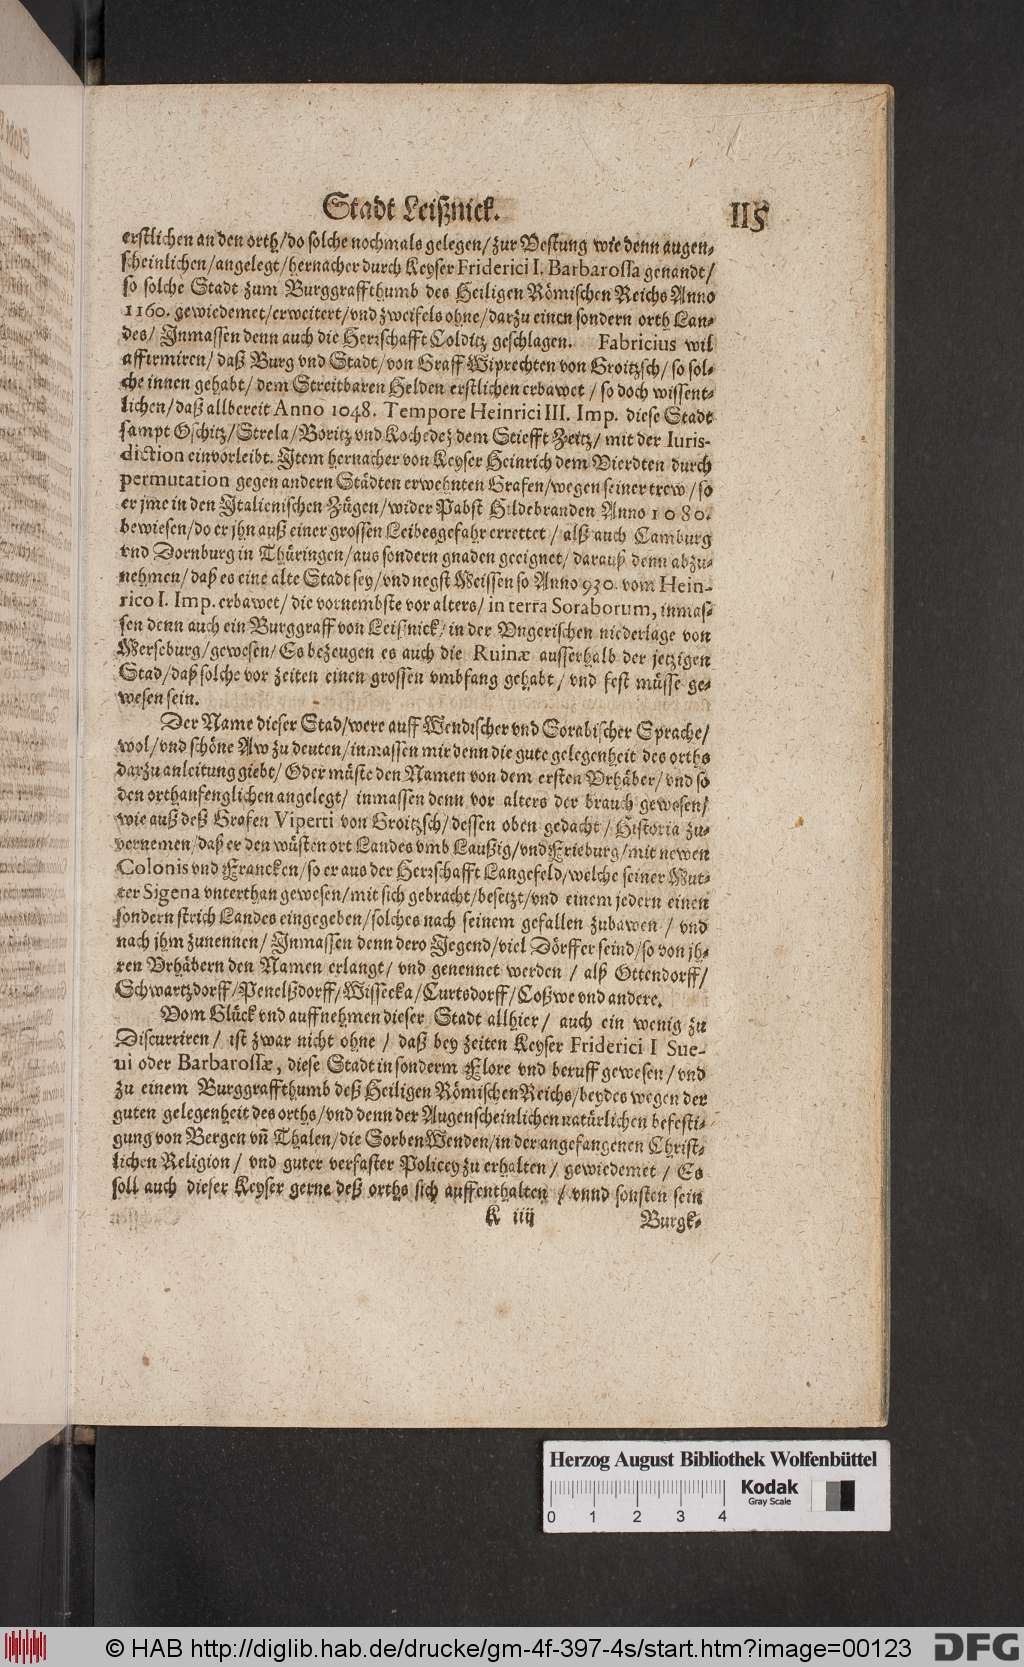 Stadt Leißnick. 115
erstlichen an den orth/do solche nochmals gelegen/zur Vestung wie denn augen-
scheinlichen/angelegt/hernacher durch Keyser Friderici I. Barbarossa genandt/
so solche Stadt zum Burggraffthumb des Heiligen Römischen Reichs Anno
1160. gewiedemet/erweitert/vnd zweifels ohne/darzu einen sondern orth Lan-
des/ Inmassen denn auch die Herrschafft Colditz geschlagen. Fabricius wil
affirmiren/ daß Burg vnd Stadt/von Graff Wiprechten von Groitzsch/ so sol-
che innen gehabt/ dem Streitbaren Helden erstlichen erbawet / so doch wissent-
lichen/daß allbereit Anno 1048. Tempore Heinrici III. Imp. diese Stadt
sampt Oschitz/Strela/Boritz vnd Kochedez dem Stiefft Zeitz/ mit der Iuris-
diction einvorleibt. Item hernacher von Keyser Heinrich dem Vierdten durch
permutation gegen andern Städten erwehnten Grafen/wegen seiner trew/so
er jme in den Italienischen Zügen/wider Pabst Hildebranden Anno 1080.
bewiesen/do er jhn auß einer grossen Leibesgefahr errettet / alß auch Camburg
vnd Dornburg in Thüringen/aus sondern gnaden geeignet/ darauß denn abzu-
nehmen/ daß es eine alte Stadt sey/vnd negst Meissen so Anno 930. vom Hein-
rico I. Imp. erbawet/ die vornembste vor alters/ in terra Soraborum, inmas-
sen denn auch ein Burggraff von Leißnick/in der Vngerischen niederlage von
Merseburg/gewesen/ Es bezeugen es auch die Ruinæ ausserhalb der jetzigen
Stad/daß solche vor zeiten einen grossen vmbfang gehabt/ vnd fest müsse ge-
wesen sein.
Der Name dieser Stad/were auff Wendischer vnd Sorabischer Sprache/
wol/vnd schöne Aw zu deuten/inmassen mir denn die gute gelegenheit des orths
darzu anleitung giebt/ Oder müste den Namen von dem ersten Vrhäber/vnd so
den orth anfenglichen angelegt/ inmassen denn vor alters der brauch gewesen/
wie auß deß Grafen Viperti von Groitzsch/dessen oben gedacht/Historia zu-
vernemen/daß er den wüsten ort Landes vmb Laußig/vnd Frieburg/mit newen
Colonis vnd Francken/so er aus der Herrschafft Langefeld/welche seiner Mut-
ter Sigena vnterthan gewesen/mit sich gebracht/besetzt/vnd einem jedern einen
sondern strich Landes eingegeben/solches nach seinem gefallen zubawen / vnd
nach jhm zunennen/ Inmassen denn dero Jegend/viel Dörffer seind/so von jh-
ren Vrhäbern den Namen erlangt/ vnd genennet werden / alß Ottendorff/
Schwartzdorff/Penelßdorff/Wissecka/Curtsdorff/Coßwe vnd andere.
Vom Glück vnd auffnehmen dieser Stadt allhier/ auch ein wenig zu
Discurriren/ ist zwar nicht ohne / daß bey zeiten Keyser Friderici I Sue-
ui oder Barbarossæ, diese Stadt in sonderm Flore vnd beruff gewesen/vnd
zu einem Burggraffthumb deß Heiligen Römischen Reichs/beydes wegen der
guten gelegenheit des orths/vnd denn der Augenscheinlichen natürlichen befesti-
gung von Bergen vn̄ Thalen/die Sorben Wenden/in der angefangenen Christ-
lichen Religion / vnd guter verfaster Policey zu erhalten/ gewiedemet / Es
soll auch dieser Keyser gerne deß orths sich auffenthalten / vnnd sonsten sein
K iiij Burgk-
Herzog August Bibliothek Wolfenbüttel
Kodak
Gray Scale
0 1 2 3 4
© HAB http://diglib.hab.de/drucke/gm-4f-397-4s/start.htm?image=00123
DFG